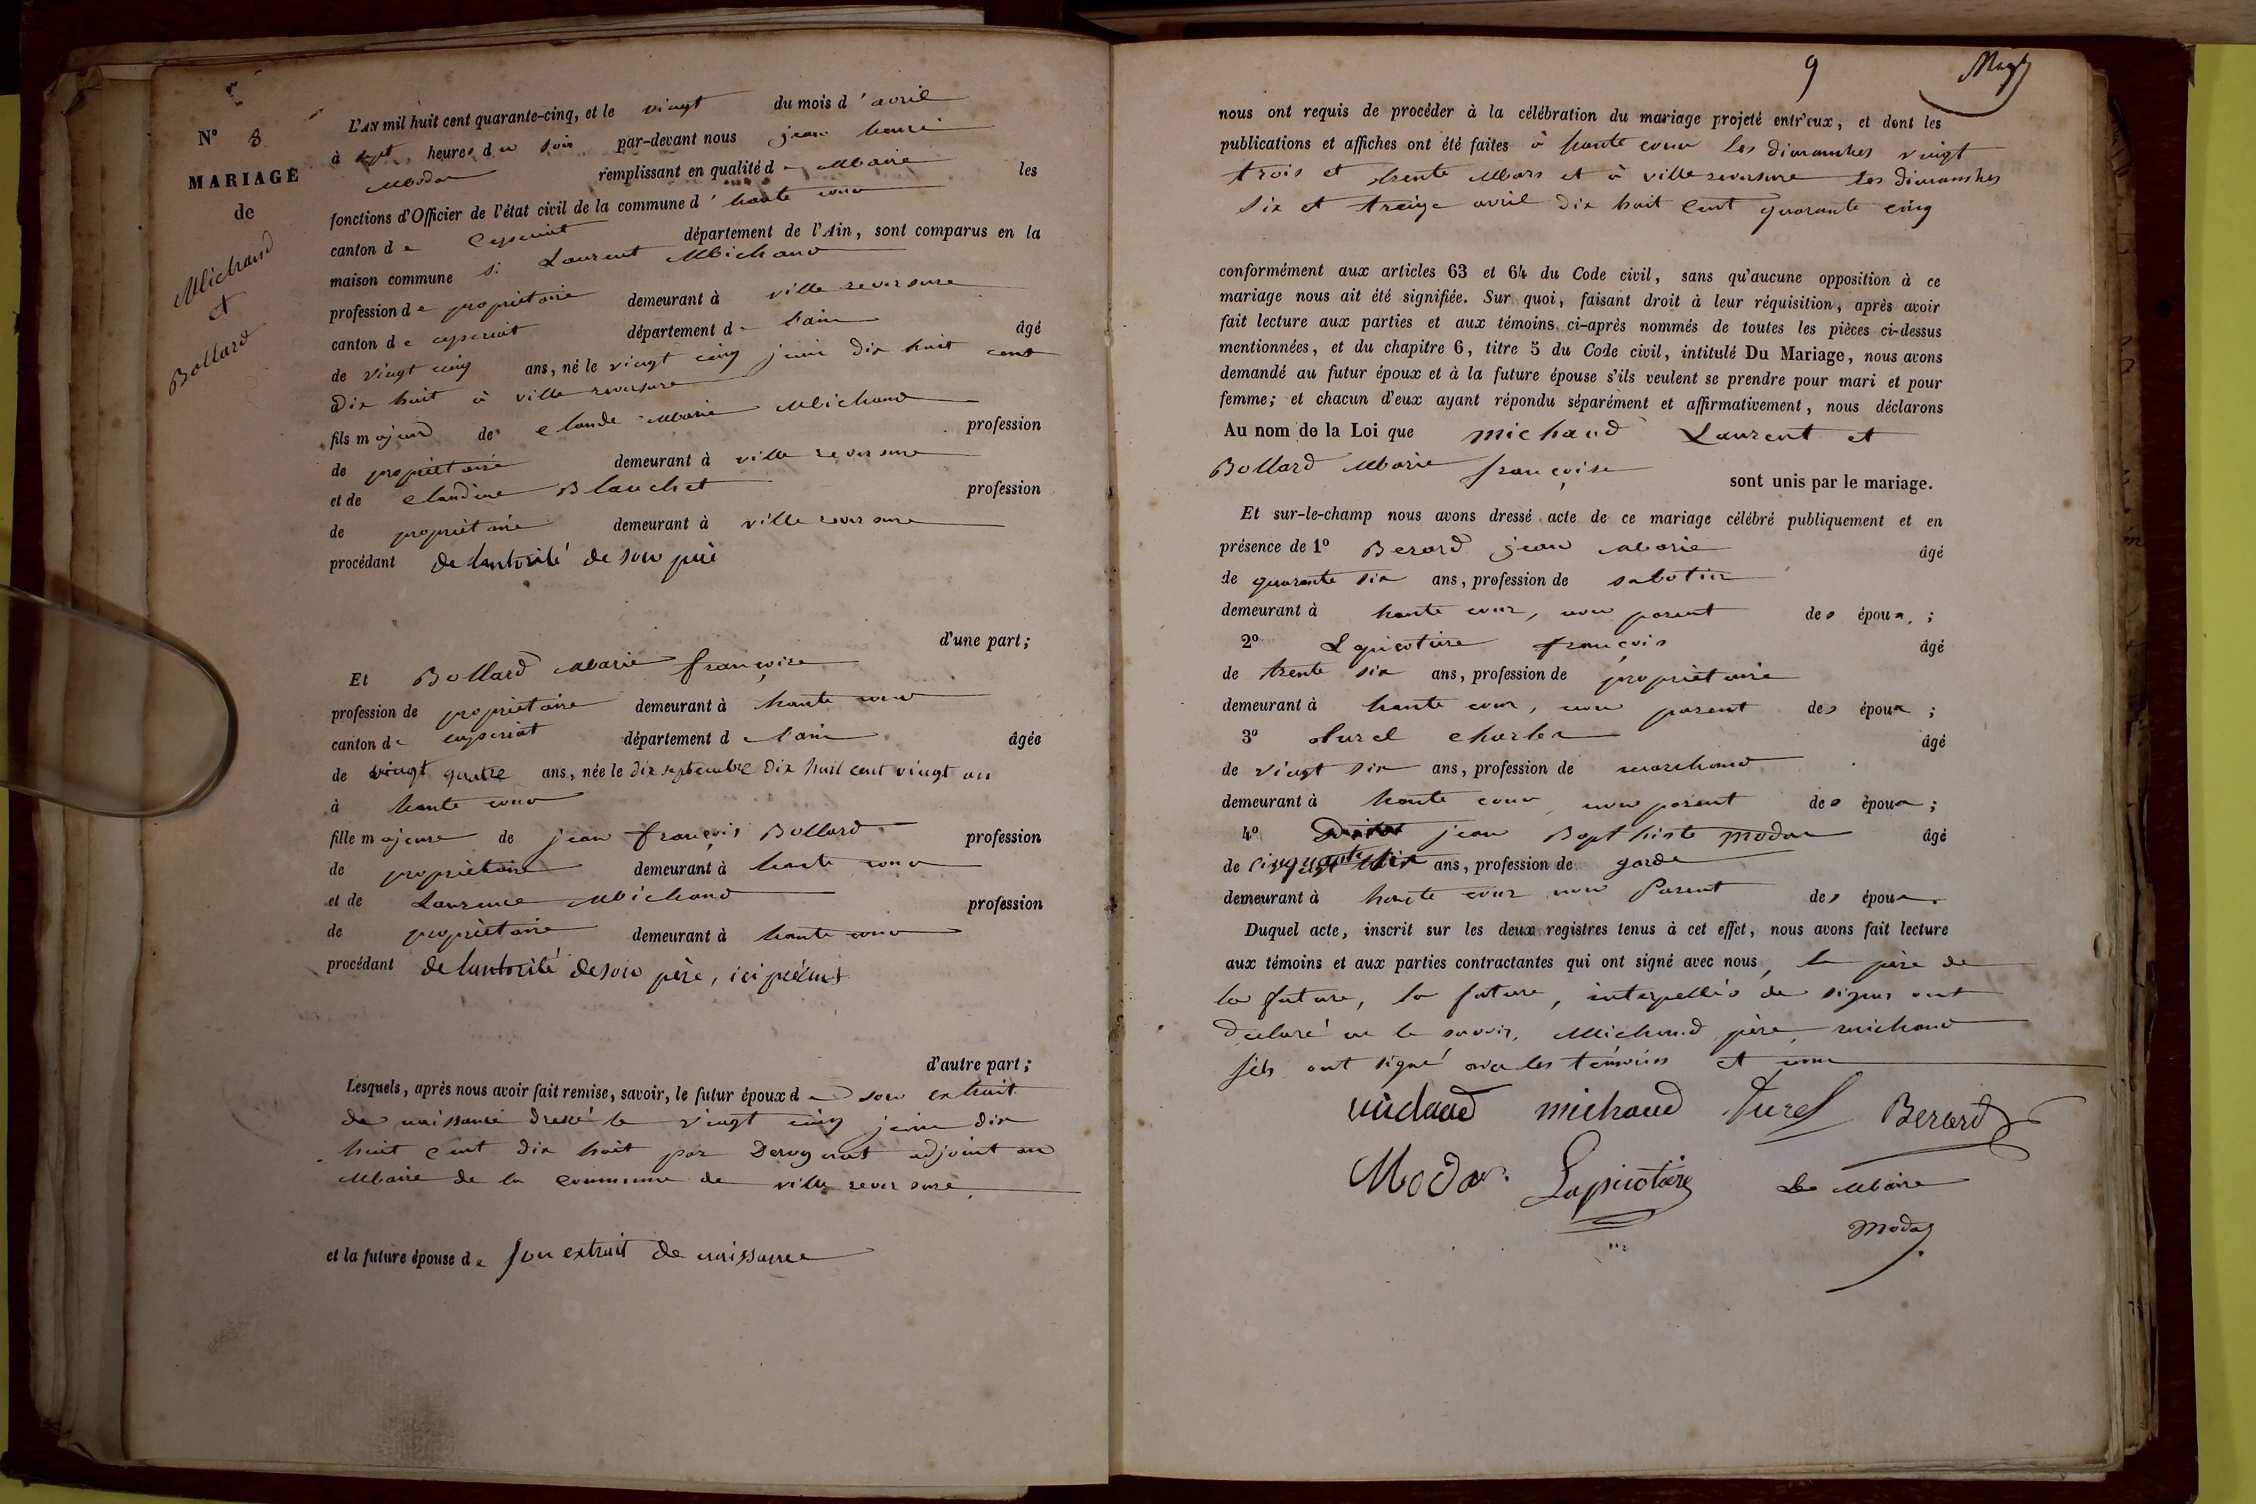 N° 8
MARIAGE
de
Michaud
et
Bollard
L'AN mil huit cent quarante-cinq, et le vingt du mois d'avril
à sept heures du soir par-devant nous jean henri
Modas remplissant en qualité de Maire les
fonctions d'Officier de l'état civil de la commune d'haute cour
canton de Ceyseriat département de l'Ain, sont comparus en la
maison commune Laurent Michaud
profession de propriétaire demeurant à ville reversure
canton de ceyseriat département de l'ain âgé
de vingt cinq ans, né le vingt cinq juin dix huit cent
dix huit à ville reversure
fils majeur de Claude Marie Michaud profession
de propriétaire demeurant à ville reversure
et de Claudine Blanchet profession
de propriétaire demeurant à ville reversure
procédant de lautorité de son père
d'une part;
Et Bollard Marie françoise
profession de propriétaire demeurant à haute cour
canton de ceyseriat département de l'ain âgée
de vingt quatre ans, née le dix septembre dix huit cent vingt un
à haute cour
fille majeure de jean françois Bollard profession
de propriétaire demeurant à haute cour
et de Laurence Michaud profession
de propriétaire demeurant à haute cour
procédant de lautorité de son père, ici présent
d'autre part;
Lesquels, après nous avoir fait remise, savoir, le futur époux de son extrait
de naissance dressé le vingt cinq juin dix
huit cent dix huit par adjoint au
Maire de la commune de ville reversure
et la future épouse de son extrait de naissance
9
nous ont requis de procéder à la célébration du mariage projeté entr'eux, et dont les
publications et affiches ont été faites à haute cour les dimanches vingt
trois et trente Mars et à ville reversure les dimanches
six et treize avril dix huit cent quarante cinq
conformément aux articles 63 et 64 du Code civil, sans qu'aucune opposition à ce
mariage nous ait été signifiée. Sur quoi, faisant droit à leur réquisition, après avoir
fait lecture aux parties et aux témoins ci-après nommés de toutes les pièces ci-dessus
mentionnées, et du chapitre 6, titre 5 du Code civil, intitulé Du Mariage, nous avons
demandé au futur époux et à la future épouse s'ils veulent se prendre pour mari et pour
femme; et chacun d'eux ayant répondu séparément et affirmativement, nous déclarons
Au nom de la Loi que michaud Laurent et
Bollard Marie françoise sont unis par le mariage.
Et sur-le-champ nous avons dressé acte de ce mariage célébré publiquement et en
présence de 1° Berard jean Marie âgé
de quarante six ans, profession de sabotier
demeurant à haute cour, non parent des époux;
2° Lapicotière françois âgé
de trente six ans, profession de propriétaire
demeurant à haute cour, non parent des époux;
3° Jurel charles âgé
de vingt six ans, profession de marchand
demeurant à haute cour non parent des époux;
4° jean Bapthiste modas âgé
de cinquante ans, profession de garde
demeurant à haute cour non Parent des époux.
Duquel acte, inscrit sur les deux registres tenus à cet effet, nous avons fait lecture
aux témoins et aux parties contractantes qui ont signé avec nous, le père de
la future, la future, interpellés de signer ont
declaré ne le savoir, Michaud père, michaud
fils ont signé avec les témoins et nous
michaud michaud Jurel Berard
Modas Lapicotière Le Maire
Modas